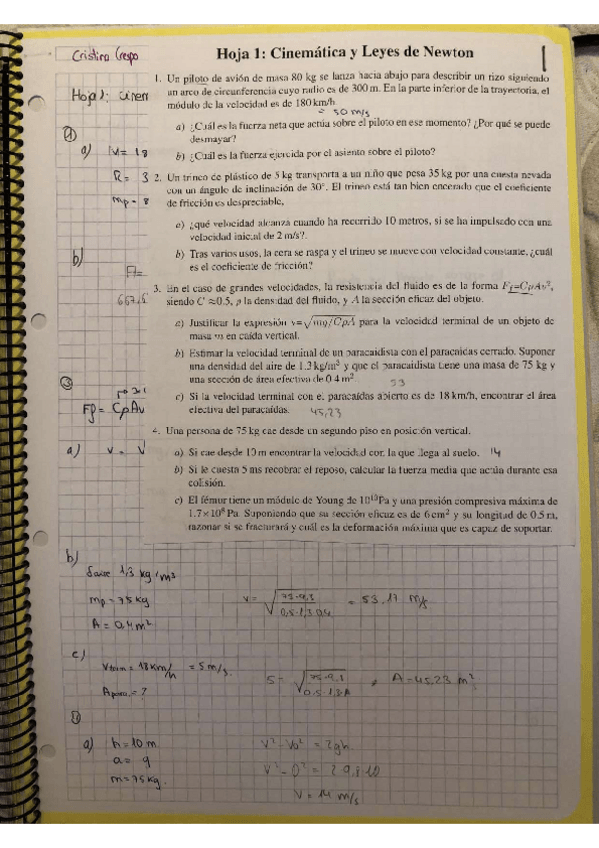 Cristina Crespo
Hoja 1: Cinemática y Leyes de Newton
1
1. Un piloto de avión de masa 80 kg se lanza hacia abajo para describir un rizo siguiendo
un arco de circunferencia cuyo radio es de 300 m. En la parte inferior de la trayectoria, el
módulo de la velocidad es de 180 km/h.
= 50 m/s
a) ¿Cuál es la fuerza neta que actúa sobre el piloto en ese momento? ¿Por qué se puede
desmayar?
b) ¿Cuál es la fuerza ejercida por el asiento sobre el piloto?
Hoja 1: Cinem
1
a) V = 18
R = 3
mp = 8
b)
667,6
2. Un trineo de plástico de 5 kg transporta a un niño que pesa 35 kg por una cuesta nevada
con un ángulo de inclinación de 30°. El trineo está tan bien encerado que el coeficiente
de fricción es despreciable.
a) ¿qué velocidad alcanza cuando ha recorrido 10 metros, si se ha impulsado con una
velocidad inicial de 2 m/s?.
b) Tras varios usos, la cera se raspa y el trineo se mueve con velocidad constante, ¿cuál
es el coeficiente de fricción?
3. En el caso de grandes velocidades, la resistencia del fluido es de la forma Ff=CρAv²,
siendo C≈0.5, ρ la densidad del fluido, y A la sección eficaz del objeto.
a) Justificar la expresión v=√mg/CρA para la velocidad terminal de un objeto de
masa m en caída vertical.
b) Estimar la velocidad terminal de un paracaidista con el paracaídas cerrado. Suponer
una densidad del aire de 1.3 kg/m³ y que el paracaidista tiene una masa de 75 kg y
una sección de área efectiva de 0.4 m²
53
c) Si la velocidad terminal con el paracaídas abierto es de 18 km/h, encontrar el área
efectiva del paracaídas.
45,23
4. Una persona de 75 kg cae desde un segundo piso en posición vertical.
a) Si cae desde 10 m encontrar la velocidad con la que llega al suelo. 14
b) Si le cuesta 5 ms recobrar el reposo, calcular la fuerza media que actúa durante esa
colisión.
c) El fémur tiene un módulo de Young de 10¹⁰ Pa y una presión compresiva máxima de
1.7×10⁸ Pa. Suponiendo que su sección eficaz es de 6 cm² y su longitud de 0.5 m,
razonar si se fracturará y cuál es la deformación máxima que es capaz de soportar.
3
Ff = CρAv
a) v = √
b)
1,3 kg/m³
mp = 75 kg
A = 0,4 m²
v = √75·9,8 / 0,5·1,3·0,4 = 53,17 m/s
c)
Vterm = 18 km/h = 5 m/s
Apara = ?
5 = √75·9,8 / 0,5·1,3·A ; A = 45,23 m²
4
a) h = 10 m
a = g
m = 75 kg
V² - Vo² = 2gh
V² - 0² = 2·9,8·10
V = 14 m/s